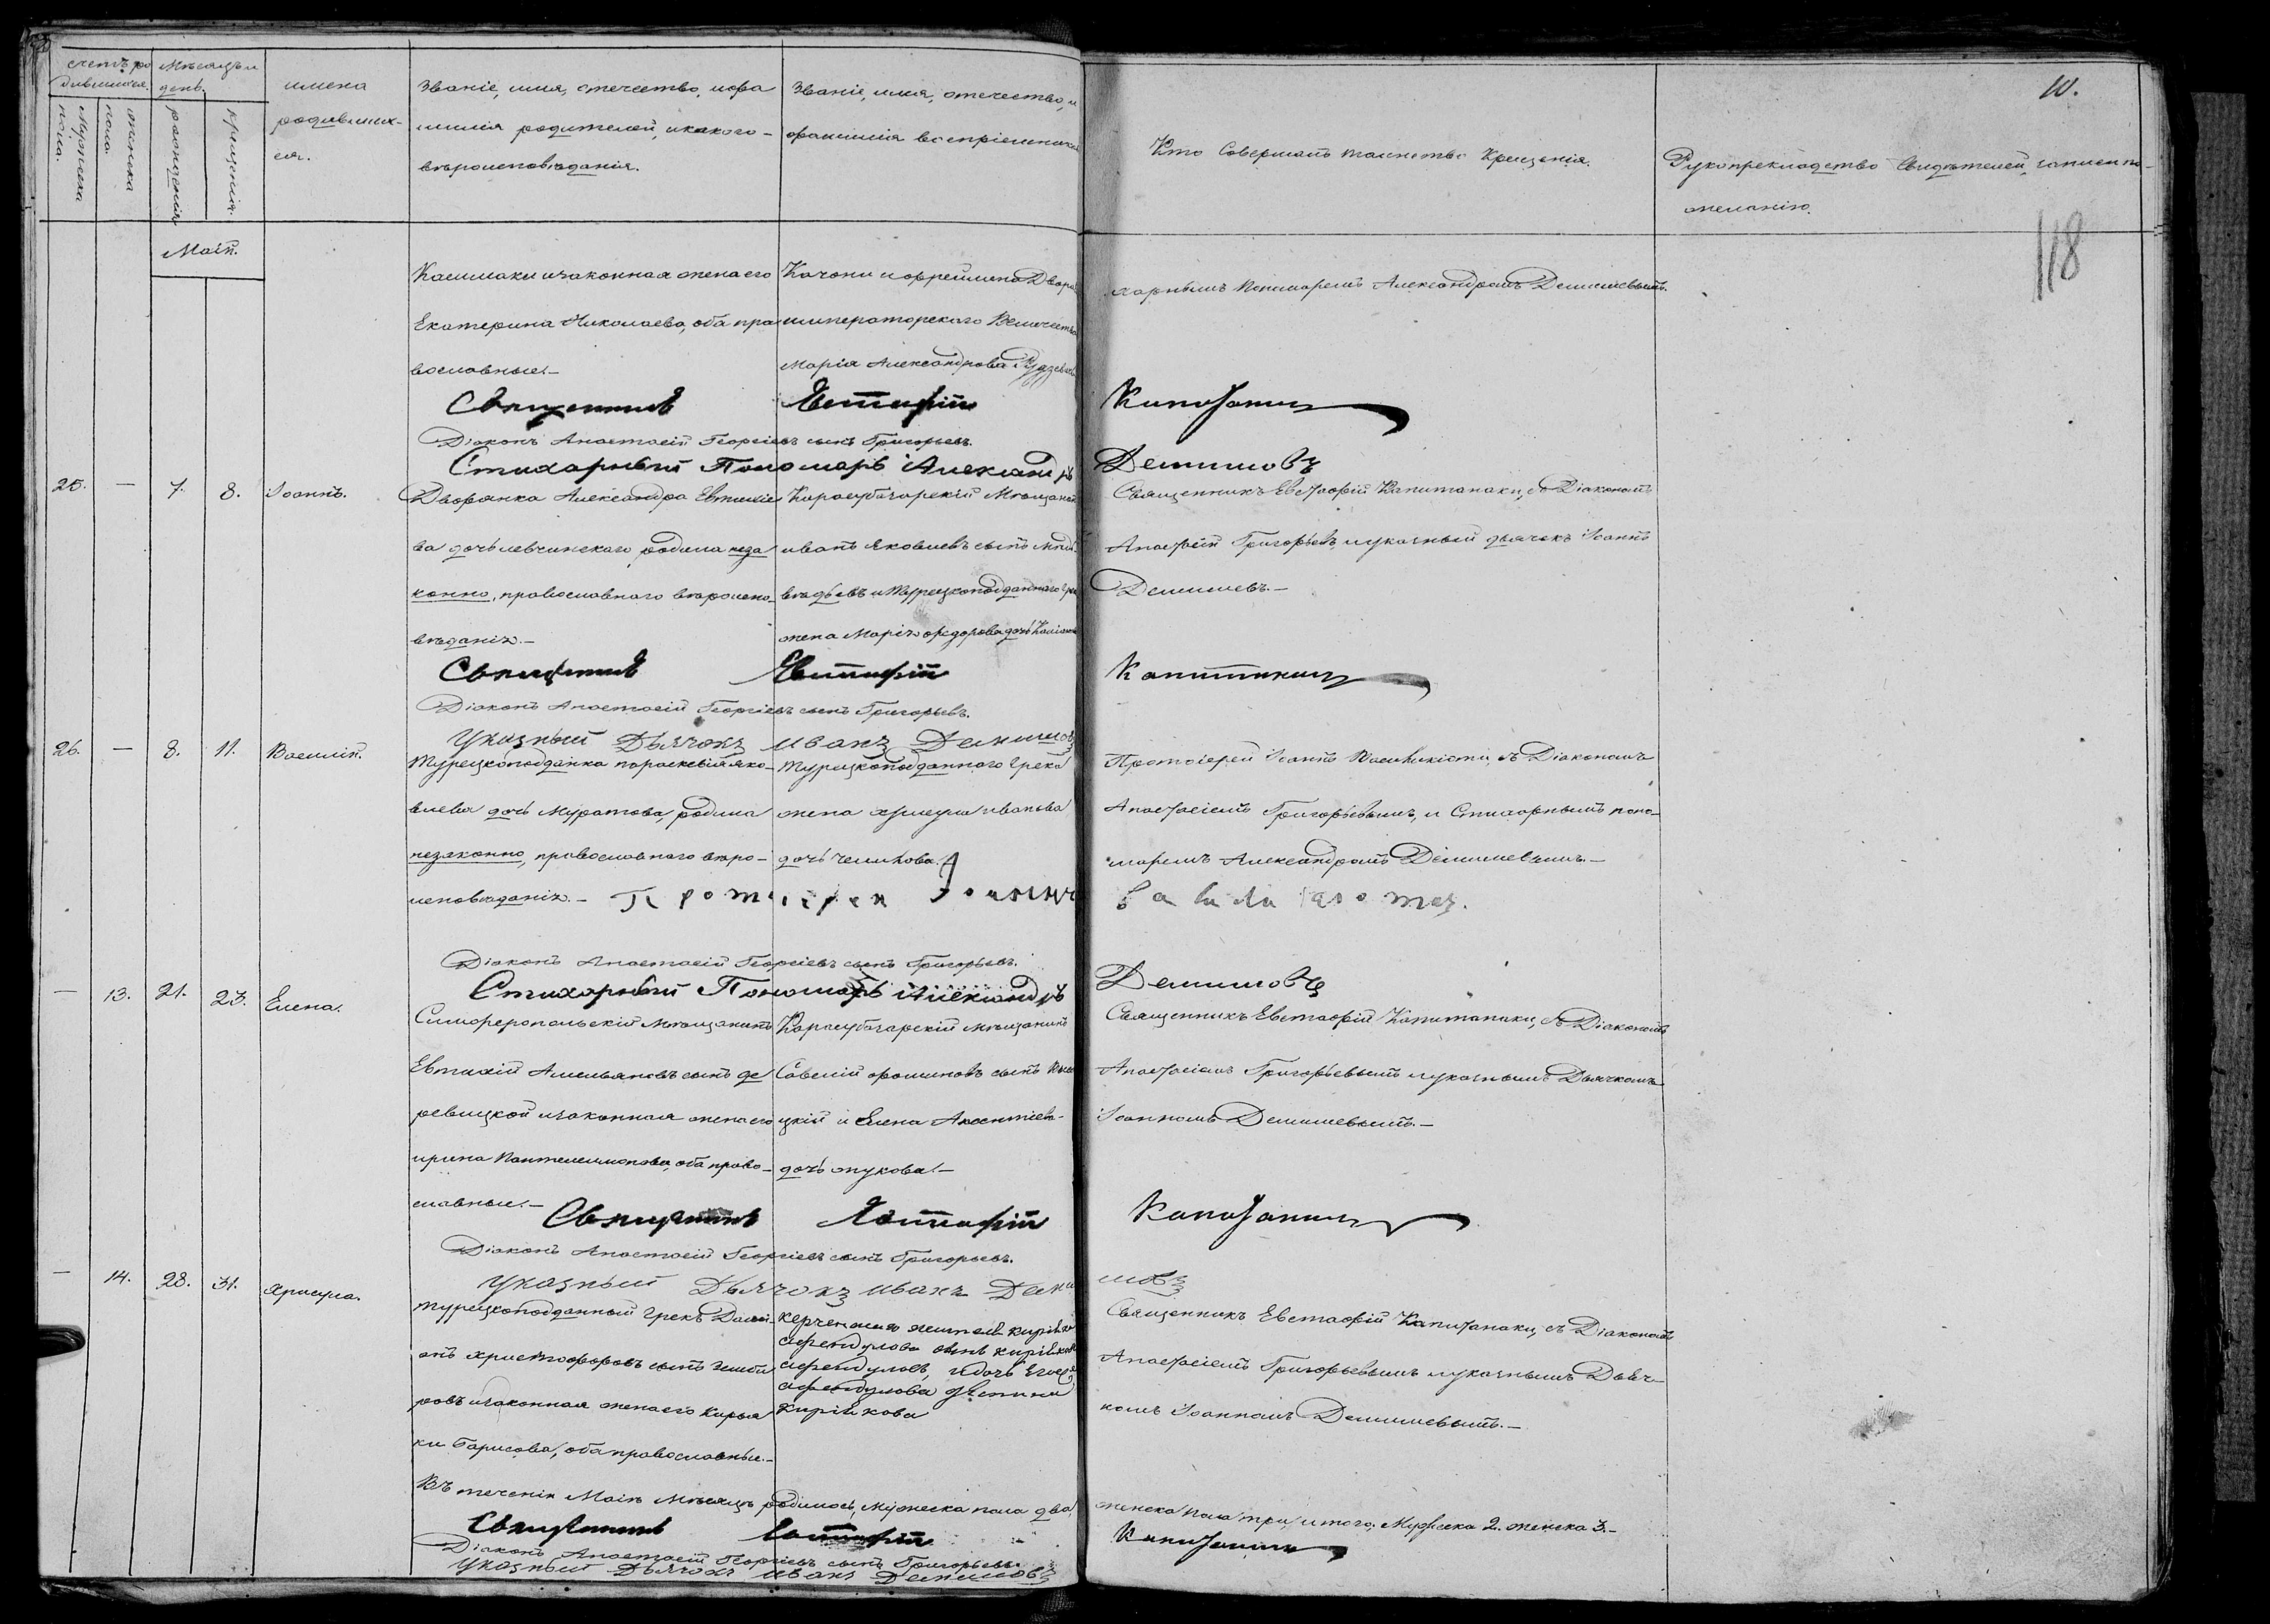 счетъ ро
дившихся.
Мѣсяцъ и
день.
Мужеска
пола.
женска
пола.
рожденія
крещенія.
имена
родивших-
ся.
Званіе, имя, отчество, и фа
милія родителей, и какого-
вѣроисповѣданія.
Званіе, имя, отчество, и
фамилія воспріемников
Кто Совершалъ таинство Крещенія.
Рукоприкладство Свидѣтелей, записи по-
желанію.
10.
118
Маій.
и законная жена его
Екатерина Николаева, оба пра
вославные.-
и фрейлина Двора
императорскаго Величества
Марія Александрова
харнымъ Пономаремъ Александромъ Демишевымъ.
Священникъ Евстафій Капитанаки
Діаконъ Анастасій Георгіевъ сынъ Григорьевъ.
Стихарный Пономарь Александръ Демишовъ
25. — 7. 8. Іоаннъ.
Дворянка Александра Евтихіе
ва дочь левчинскаго, родила неза
конно, православнаго вѣроиспо-
вѣданія.-
Карасубазарскій Мѣщанин
иванъ Яковлевъ сынъ
и Турецкоподданнаго
жена Марія федорова дочь
Священникъ Евстафій Капитанаки, съ Діакономъ
Анастасій Григорьевъ, и указный дьячекъ Іоаннъ
Демишевъ.-
Священникъ Евстафій Капитанаки
Діаконъ Анастасій Георгіевъ сынъ Григорьевъ.
Указный Дьячокъ иванъ Демишовъ
26. — 8. 11. Василій.
Турецкоподданка параскевія яко-
влева дочь Муратова, родила
незаконно, православнаго вѣро-
исповѣданія.-
Турецкоподданнаго Грека
жена иванова
дочь
Протоіерей Іоаннъ съ Діакономъ
Анастасіемъ Григорьевымъ, и Стихарнымъ поно-
маремъ Александромъ Демишевымъ.-
Протоіерей Іоаннъ
Діаконъ Анастасій Георгіевъ сынъ Григорьевъ.
Стихарный Пономарь Александръ Демишовъ
— 13. 21. 23. Елена.
Симферопольскій мѣщанинъ
Евтихій Амельяновъ сынъ де
ревицкой и законная жена его
ирина Пантелеимонова, оба право-
славные.-
Карасубазарскій мѣщанинъ
Савелій фоминовъ сынъ
цкій и Елена Авксентіева-
дочь жукова.-
Священникъ Евстафій Капитанаки, съ Діакономъ
Анастасіемъ Григорьевымъ и указнымъ Дьячкомъ
Іоанномъ Демишевымъ.-
Священникъ Евстафій Капитанаки
Діаконъ Анастасій Георгіевъ сынъ Григорьевъ.
Указный Дьячокъ иванъ Демишовъ
— 14. 28. 31. Хрисула.
Турецкоподданный Грекъ
христофоровъ сынъ
ровъ и законная жена его Кирья
ки Барисова, оба православные.-
житель
афендулова сынъ
афендуловъ, и дочь
афендулова
Кирійкова
Священникъ Евстафій Капитанаки, съ Діакономъ
Анастасіемъ Григорьевымъ и указнымъ Дьяч-
комъ Іоанномъ Демишевымъ.-
Въ теченіи Маія Мѣсяца родилось, Мужеска пола два, женска пола три, итого, Мужеска 2. женска 3.-
Священникъ Евстафій Капитанаки
Діаконъ Анастасій Георгіевъ сынъ Григорьевъ.
Указный Дьячокъ иванъ Демишовъ